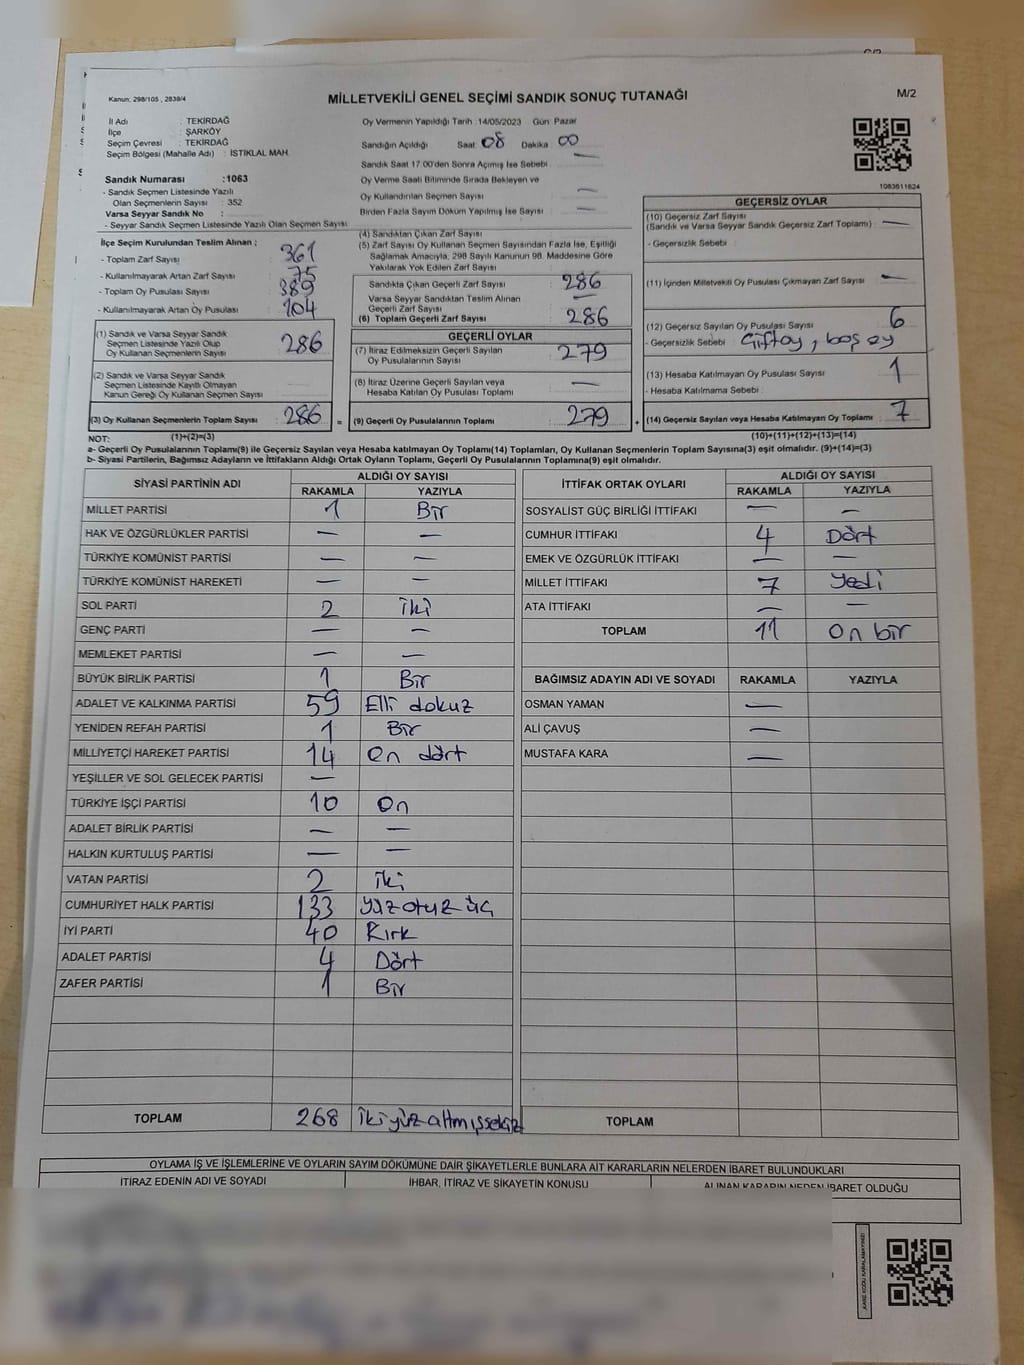 Kanun: 298/105 , 2839/4
MİLLETVEKİLİ GENEL SEÇİMİ SANDIK SONUÇ TUTANAĞI
M/2
İl Adı : TEKİRDAĞ
İlçe : ŞARKÖY
Seçim Çevresi : TEKİRDAĞ
Seçim Bölgesi (Mahalle Adı) : İSTİKLAL MAH.
Oy Vermenin Yapıldığı Tarih :14/05/2023 Gün: Pazar
Sandığın Açıldığı Saat 08 Dakika 00
Sandık Saat 17.00'den Sonra Açımış İse Sebebi —
Oy Verme Saati Bitiminde Sırada Bekleyen ve
Oy Kullandırılan Seçmen Sayısı —
Birden Fazla Sayım Döküm Yapılmış İse Sayısı —
1083611624
Sandık Numarası :1063
- Sandık Seçmen Listesinde Yazılı
Olan Seçmenlerin Sayısı : 352
Varsa Seyyar Sandık No :
- Seyyar Sandık Seçmen Listesinde Yazılı Olan Seçmen Sayısı:
İlçe Seçim Kurulundan Teslim Alınan ;
- Toplam Zarf Sayısı : 361
- Kullanılmayarak Artan Zarf Sayısı : 75
- Toplam Oy Pusulası Sayısı : 389
- Kullanılmayarak Artan Oy Pusulası : 104
(1) Sandık ve Varsa Seyyar Sandık
Seçmen Listesinde Yazılı Olup
Oy Kullanan Seçmenlerin Sayısı : 286
(2) Sandık ve Varsa Seyyar Sandık
Seçmen Listesinde Kayıtlı Olmayan
Kanun Gereği Oy Kullanan Seçmen Sayısı
(3) Oy Kullanan Seçmenlerin Toplam Sayısı : 286 =
(4) Sandıktan Çıkan Zarf Sayısı :
(5) Zarf Sayısı Oy Kullanan Seçmen Sayısından Fazla İse, Eşitliği
Sağlamak Amacıyla, 298 Sayılı Kanunun 98. Maddesine Göre
Yakılarak Yok Edilen Zarf Sayısı :
Sandıkta Çıkan Geçerli Zarf Sayısı : 286
Varsa Seyyar Sandıktan Teslim Alınan
Geçerli Zarf Sayısı : —
(6) Toplam Geçerli Zarf Sayısı : 286
GEÇERLİ OYLAR
(7) İtiraz Edilmeksizin Geçerli Sayılan
Oy Pusulalarının Sayısı : 279
(8) İtiraz Üzerine Geçerli Sayılan veya
Hesaba Katılan Oy Pusulası Toplamı : —
(9) Geçerli Oy Pusulalarının Toplamı : 279 +
GEÇERSİZ OYLAR
(10) Geçersiz Zarf Sayısı
(Sandık ve Varsa Seyyar Sandık Geçersiz Zarf Toplamı) : —
- Geçersizlik Sebebi :
(11) İçinden Milletvekili Oy Pusulası Çıkmayan Zarf Sayısı : —
(12) Geçersiz Sayılan Oy Pusulası Sayısı : 6
- Geçersizlik Sebebi : Çiftoy, boş oy
(13) Hesaba Katılmayan Oy Pusulası Sayısı : 1
- Hesaba Katılmama Sebebi :
(14) Geçersiz Sayılan veya Hesaba Katılmayan Oy Toplamı : 7
NOT: (1)+(2)=(3)
(10)+(11)+(12)+(13)=(14)
a- Geçerli Oy Pusulalarının Toplamı(9) ile Geçersiz Sayılan veya Hesaba katılmayan Oy Toplamı(14) Toplamları, Oy Kullanan Seçmenlerin Toplam Sayısına(3) eşit olmalıdır. (9)+(14)=(3)
b- Siyasi Partilerin, Bağımsız Adayların ve İttifakların Aldığı Ortak Oyların Toplamı, Geçerli Oy Pusulalarının Toplamına(9) eşit olmalıdır.
SİYASİ PARTİNİN ADI ALDIĞI OY SAYISI
RAKAMLA YAZIYLA
MİLLET PARTİSİ 1 Bir
HAK VE ÖZGÜRLÜKLER PARTİSİ — —
TÜRKİYE KOMÜNİST PARTİSİ — —
TÜRKİYE KOMÜNİST HAREKETİ — —
SOL PARTİ 2 iki
GENÇ PARTİ — —
MEMLEKET PARTİSİ — —
BÜYÜK BİRLİK PARTİSİ 1 Bir
ADALET VE KALKINMA PARTİSİ 59 Elli dokuz
YENİDEN REFAH PARTİSİ 1 Bir
MİLLİYETÇİ HAREKET PARTİSİ 14 on dört
YEŞİLLER VE SOL GELECEK PARTİSİ —
TÜRKİYE İŞÇİ PARTİSİ 10 On
ADALET BİRLİK PARTİSİ — —
HALKIN KURTULUŞ PARTİSİ — —
VATAN PARTİSİ 2 iki
CUMHURİYET HALK PARTİSİ 133 yüz otuz üç
İYİ PARTİ 40 Kırk
ADALET PARTİSİ 4 Dört
ZAFER PARTİSİ 1 Bir
TOPLAM 268 ikiyüzaltmışsekiz
İTTİFAK ORTAK OYLARI ALDIĞI OY SAYISI
RAKAMLA YAZIYLA
SOSYALİST GÜÇ BİRLİĞİ İTTİFAKI — —
CUMHUR İTTİFAKI 4 Dört
EMEK VE ÖZGÜRLÜK İTTİFAKI — —
MİLLET İTTİFAKI 7 yedi
ATA İTTİFAKI — —
TOPLAM 11 On bir
BAĞIMSIZ ADAYIN ADI VE SOYADI RAKAMLA YAZIYLA
OSMAN YAMAN —
ALİ ÇAVUŞ —
MUSTAFA KARA —
TOPLAM
OYLAMA İŞ VE İŞLEMLERİNE VE OYLARIN SAYIM DÖKÜMÜNE DAİR ŞİKAYETLERLE BUNLARA AİT KARARLARIN NELERDEN İBARET BULUNDUKLARI
İTİRAZ EDENİN ADI VE SOYADI İHBAR, İTİRAZ VE ŞİKAYETİN KONUSU ALINAN KARARIN NEDEN İBARET OLDUĞU